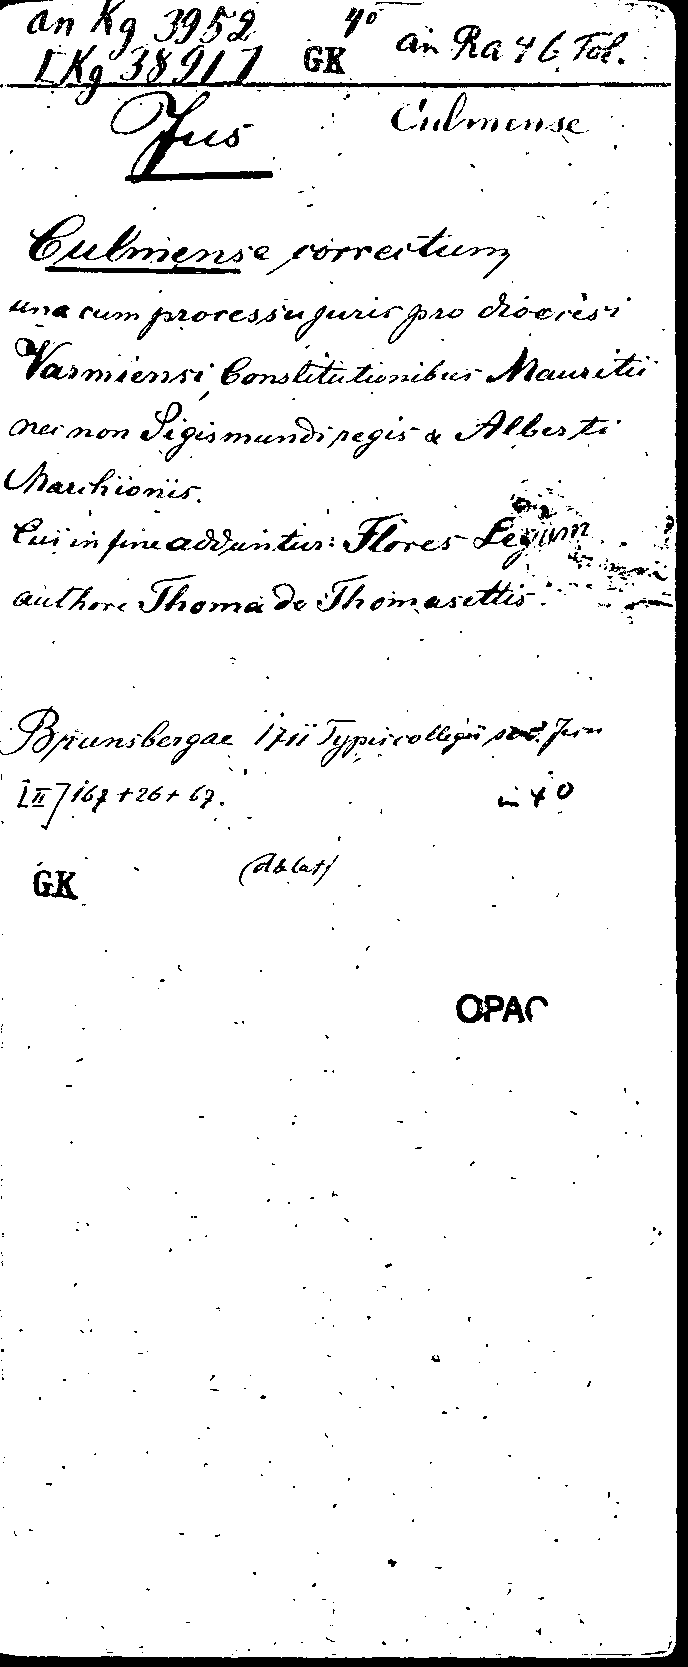 an Kg 3952 4° an Ra 46 Fol.
[Kg 3891 7 GK
Jus Culmense
Culmense correctum
una cum processu juris pro dioecesi
Varmiensi, Constitutionibus Mauritii
nec non Sigismundi regis & Alberti
Marchionis.
Cui in fine adduntur: Flores Legum
authore Thoma de Thomasettis.
Brunsbergae 1711 Typis collegii soc. Jesu
[II] 167 + 26 + 67. in 4°
GK
OPAC